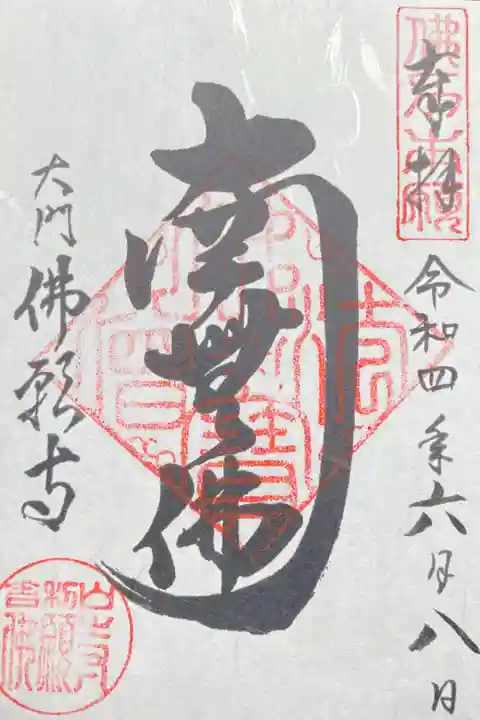 奉拝
令和四年六月八日
南無佛
大門 佛願寺
佛法僧寶